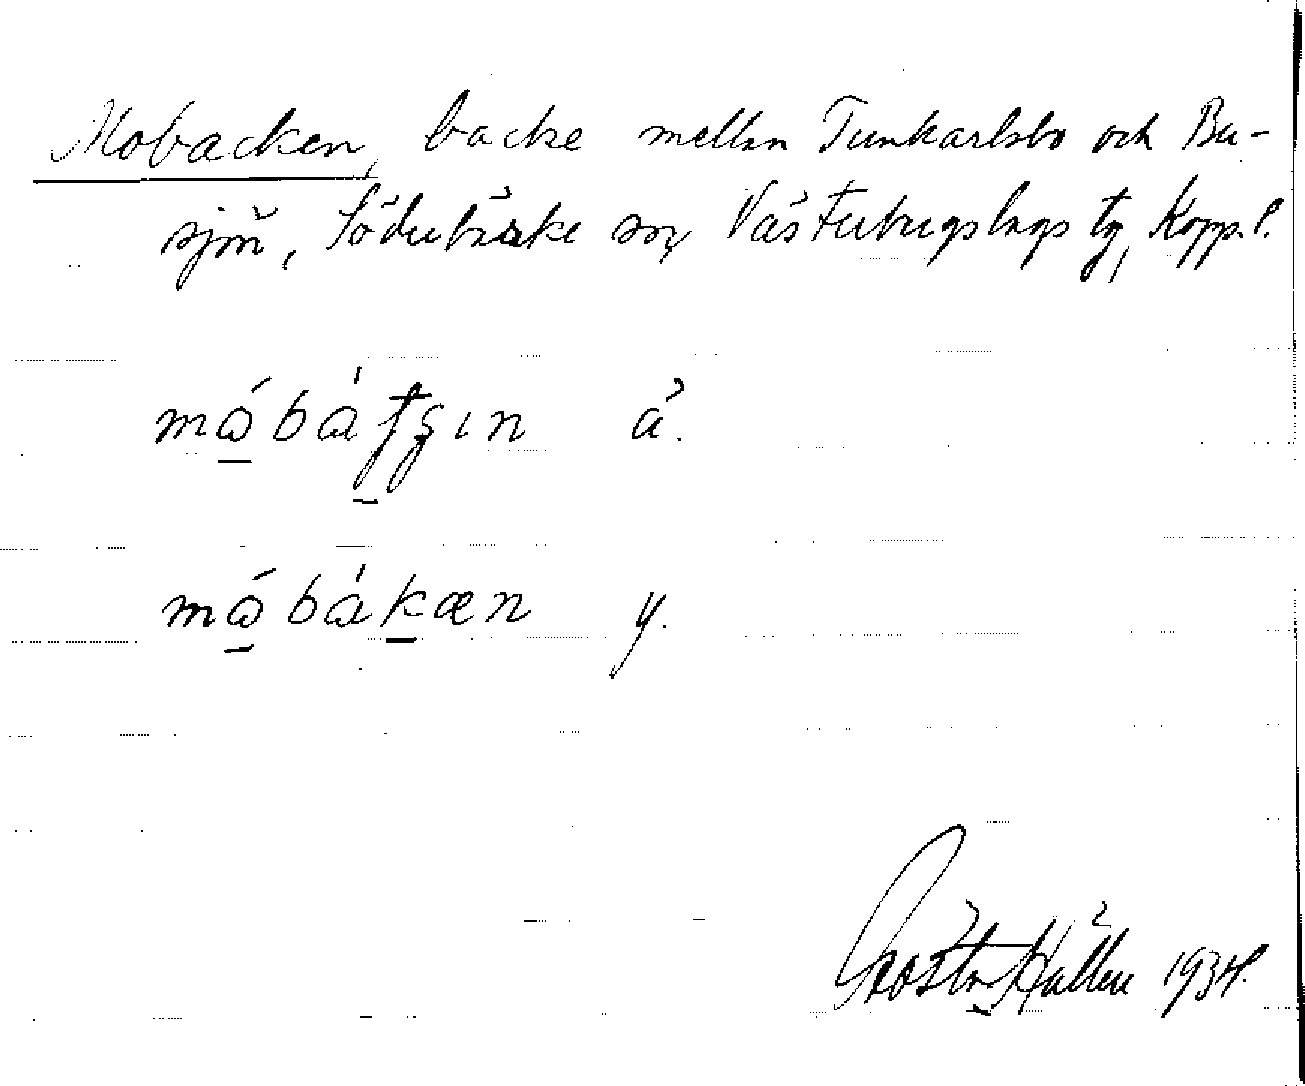 Mobacken, backe mellan Tunkarlsbo och Bu-
sjön, Söderbärke sn, Västerbergslags tg, Kopp. l.
mɷ́bàʈʂın ä.
mɷ́bàkæn y.
Gösta Hallén 1934.